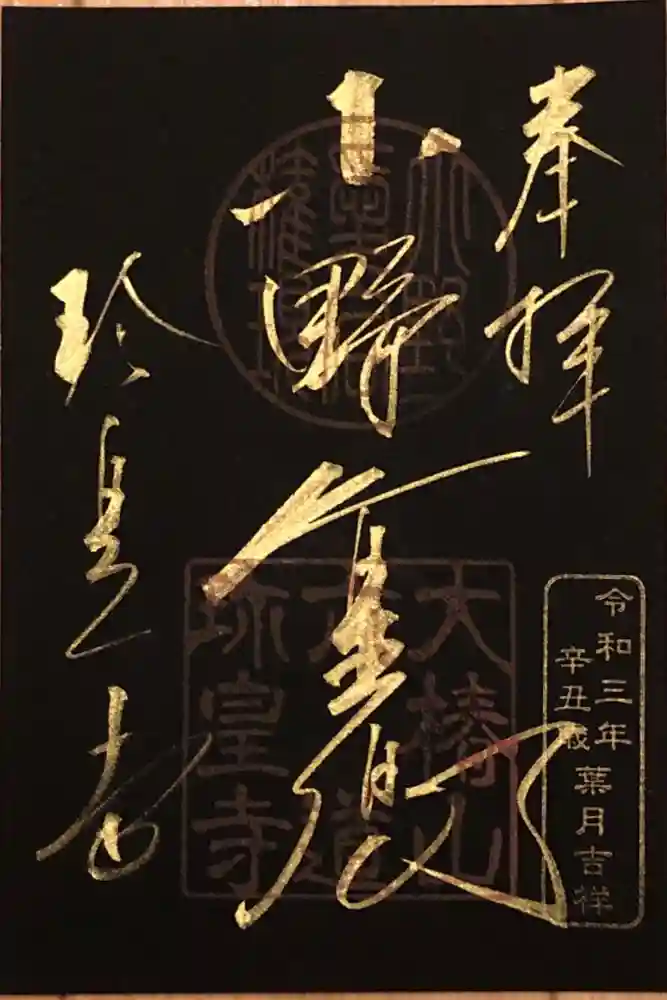 奉拝
令和三年
辛丑歳
葉月吉祥
小野篁卿
大椿山
六道
珍皇寺
珍皇寺